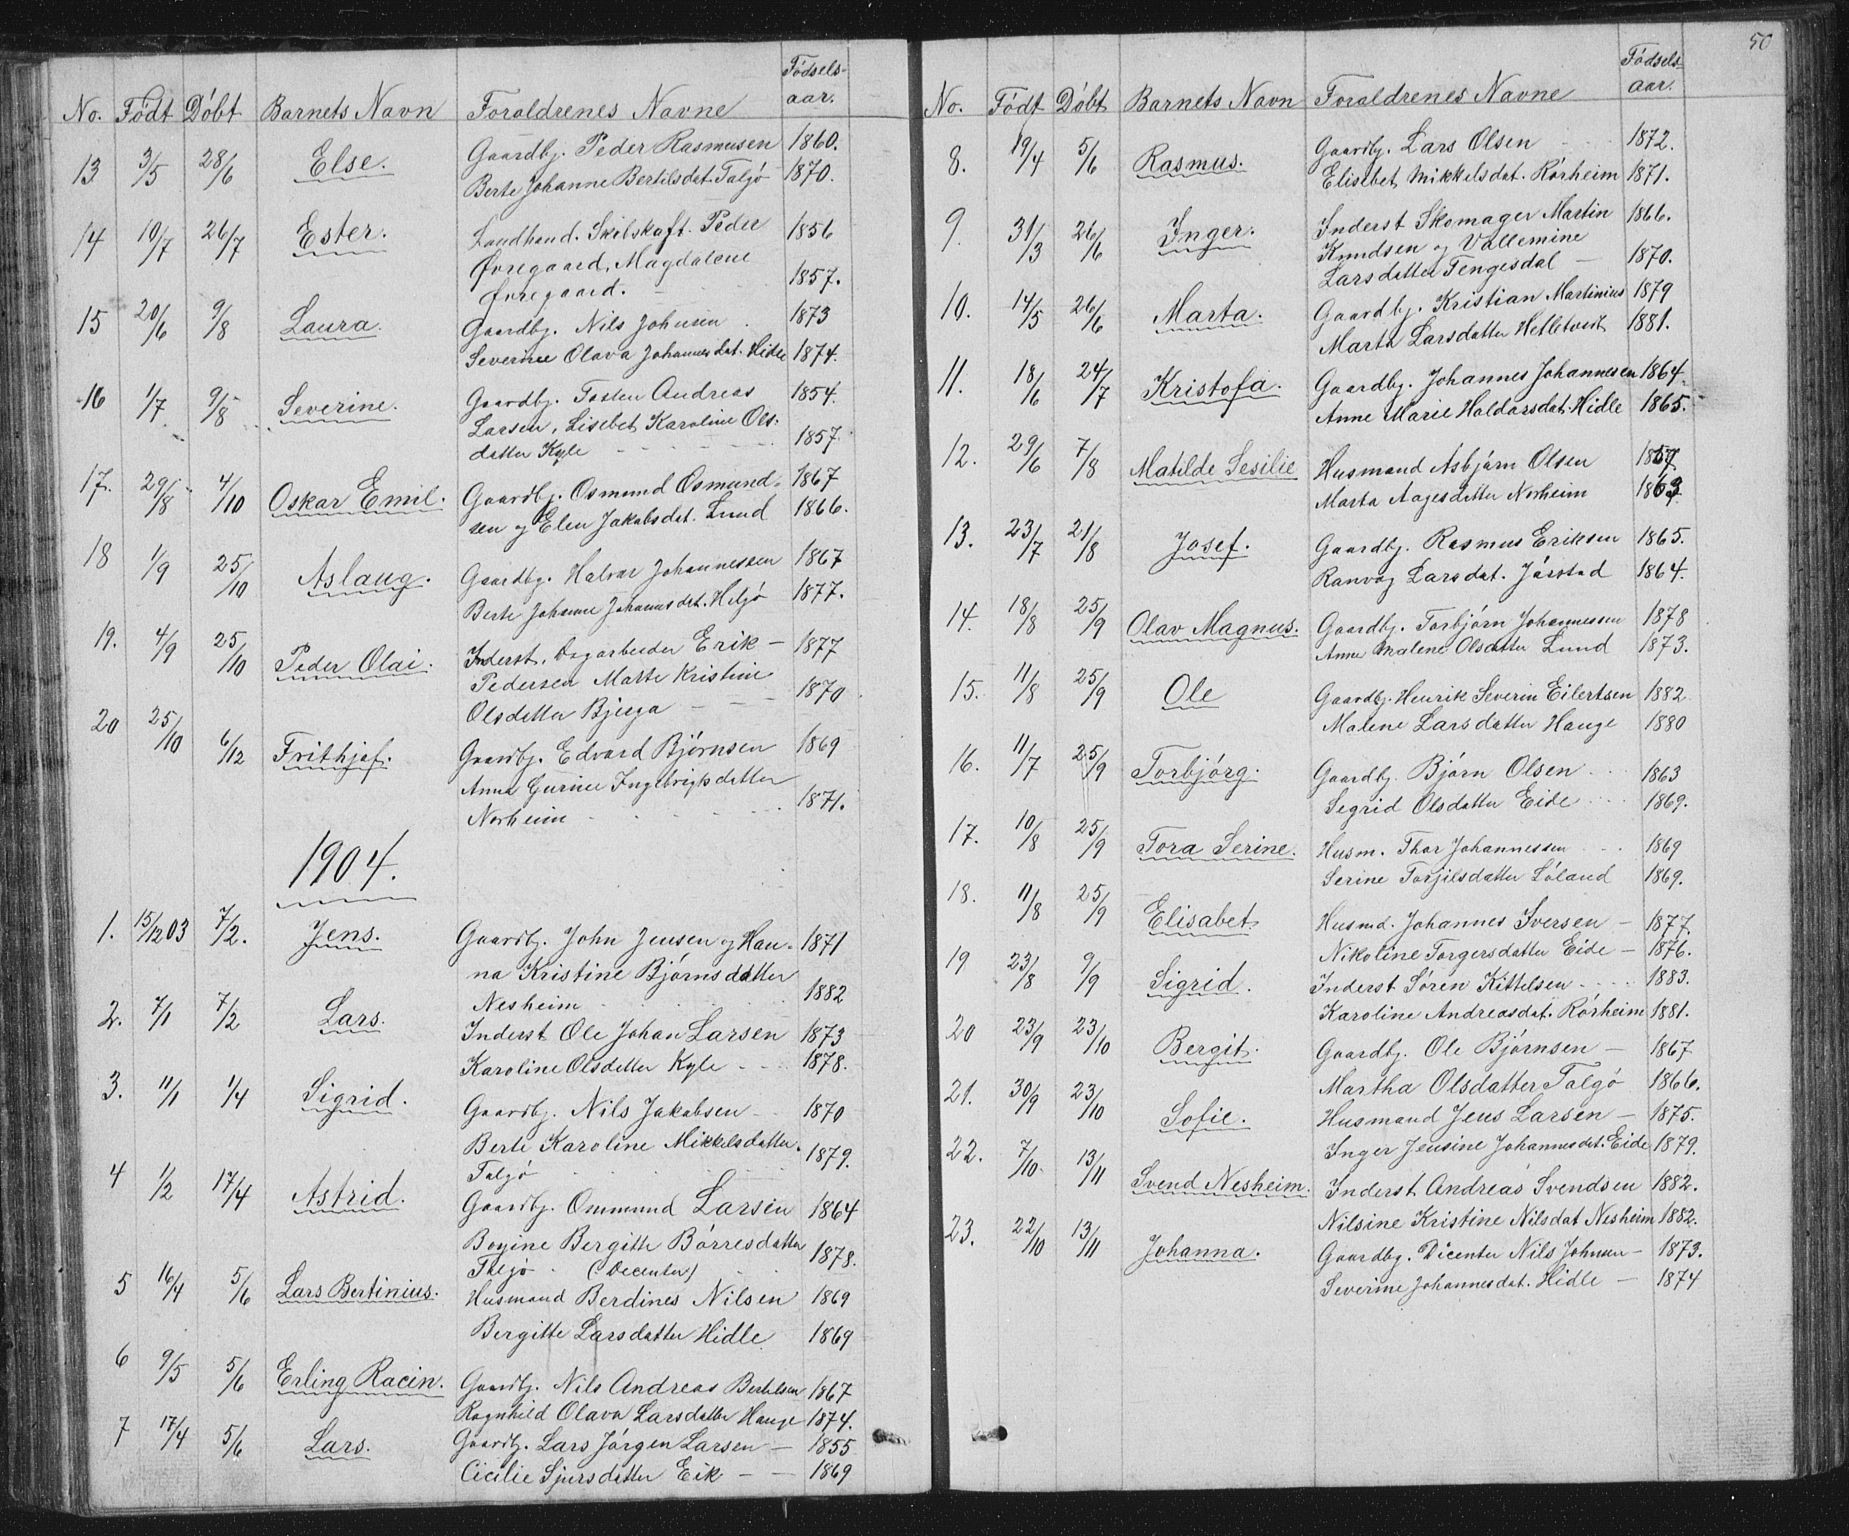 No. Født Döbt Barnets Navn Foraldrenes Navne Födsels-
aar.
13 3/5 28/6 Else. Gaardbj. Peder Rasmusen 1860.
Berte Johanne Bertilsdat. Talgö 1870.
14 10/7 26/7 Ester. Landhand. Skibskaft. Peder 1856
Øvregaard, Magdalene
Øvregaard. 1857.
15 20/6 9/8 Laura. Gaardbj. Nils Johnsen 1873
Severine Olava Johannesdat. Hidle 1874.
16 1/7 9/8 Severine. Gaardbj. Tosten Andreas 1854.
Larsen, Lisebet Karoline Ols-
datter Kyle 1857.
17. 29/8 4/10 Oskar Emil. Gaardbj. Osmund Osmund- 1867
sen og Elen Jakobsdat. Lund 1866.
18 1/9 25/10 Aslaug. Gaardbj. Halvar Johannessen 1867
Berte Johanne Johannesdat. Heljö 1877.
19. 4/9 25/10 Peder Olai. Inderst. Dagarbeider Erik – 1877
Pedersen Marte Kristine
Olsdatter Bjerga 1870
20 25/10 6/12 Frithjof. Gaardbj. Edvard Björnsen 1869
Anna Gurine Ingebrigtsdatter
Norheim 1871.
1904.
1. 15/12 03 7/2. Jens. Gaardbj. John Jensen og Han- 1871
na Kristine Björnsdatter
Nesheim 1882
2. 7/1 7/2 Lars. Inderst Ole Johan Larsen 1873
Karoline Olsdatter Kyle 1878.
3. 11/1 1/4 Sigrid. Gaardbj. Nils Jakobsen 1870
Berte Karoline Mikkelsdatter
Talgö 1879.
4 1/2 17/4 Astrid. Gaardbj. Ommund Larsen 1864
Bogine Bergitte Börresdatter
Talgö (Decenter) 1878.
5 16/4 5/6 Lars Bertinius. Husmand Berdines Nilsen 1869
Bergitte Larsdatter Hidle 1869
6 9/5 5/6 Erling Racin. Gaardbj. Nils Andreas Bertilsen 1867
Ragnhild Olava Larsdatter Hauge 1874.
7 17/4 5/6 Lars. Gaardbj. Lars Jörgen Larsen – 1855
Cicilie Sjursdatter Eik – – 1869
50
No. Födt Döbt Barnets Navn Foraldrenes Navne Födsels-
aar.
8. 19/4 5/6 Rasmus. Gaardbj. Lars Olsen 1872.
Elisebet Mikkelsdat. Rörheim 1871.
9. 31/3 26/6 Inger. Inderst Skomager Martin 1866.
Knudsen og Vallemine
Larsdatter Tengesdal – 1870.
10. 14/5 26/6 Marta. Gaardbj. Kristian Martinius 1879
Marta Larsdatter Helletveit 1881.
11. 18/6 24/7 Kristofa. Gaardbj. Johannes Johannesen 1864.
Anne Marie Haldorsdat. Hidle 1865.
12. 29/6 7/8 Matilde Sesilie Husmand Asbjörn Olsen
Marta Aagesdatter Norheim
13. 23/7 21/8 Josef. Gaardbj. Rasmus Eriksen 1865.
Ranvög Larsdat. Jörstad 1864.
14. 18/8 25/9 Olav Magnus. Gaardbj. Torbjörn Johannessen 1878
Anne Malene Olsdatter Lund 1873.
15. 11/8 25/9 Ole Gaardbj. Henrik Severin Eilertsen 1882
Malene Larsdatter Hauge 1880
16. 11/7 25/9 Torbjörg. Gaardbj. Björn Olsen 1863
Segrid Olsdatter Eide 1869.
17. 10/8 25/9 Tora Serine. Husm. Thor Johannessen 1869
Serine Torjilsdatter Löland 1869.
18. 11/8 25/9 Elisabet Husmd. Johannes Iversen – 1877.
Nikoline Torgersdatter Eide – 1876.
19 23/8 9/9 Sigrid. Inderst Sören Kittelsen 1883.
Karoline Andreasdat. Rörheim 1881.
20 23/9 23/10 Bergit. Gaardbj. Ole Björnsen – 1867
Martha Olsdatter Talgö 1866.
21. 30/9 23/10 Sofie. Husmand Jens Larsen – 1875.
Inger Jensine Johannesdat. Eide 1879.
22. 7/10. 13/11 Svend Nesheim. Inderst Andreas Svendsen 1882.
Nilsine Kristine Nilsdat Nesheim 1882.
23. 22/10 13/11 Johanna. Gaardbj. Dicenter Nils Johnsen – 1873.
Severine Johannesdat. Hidle – 1874